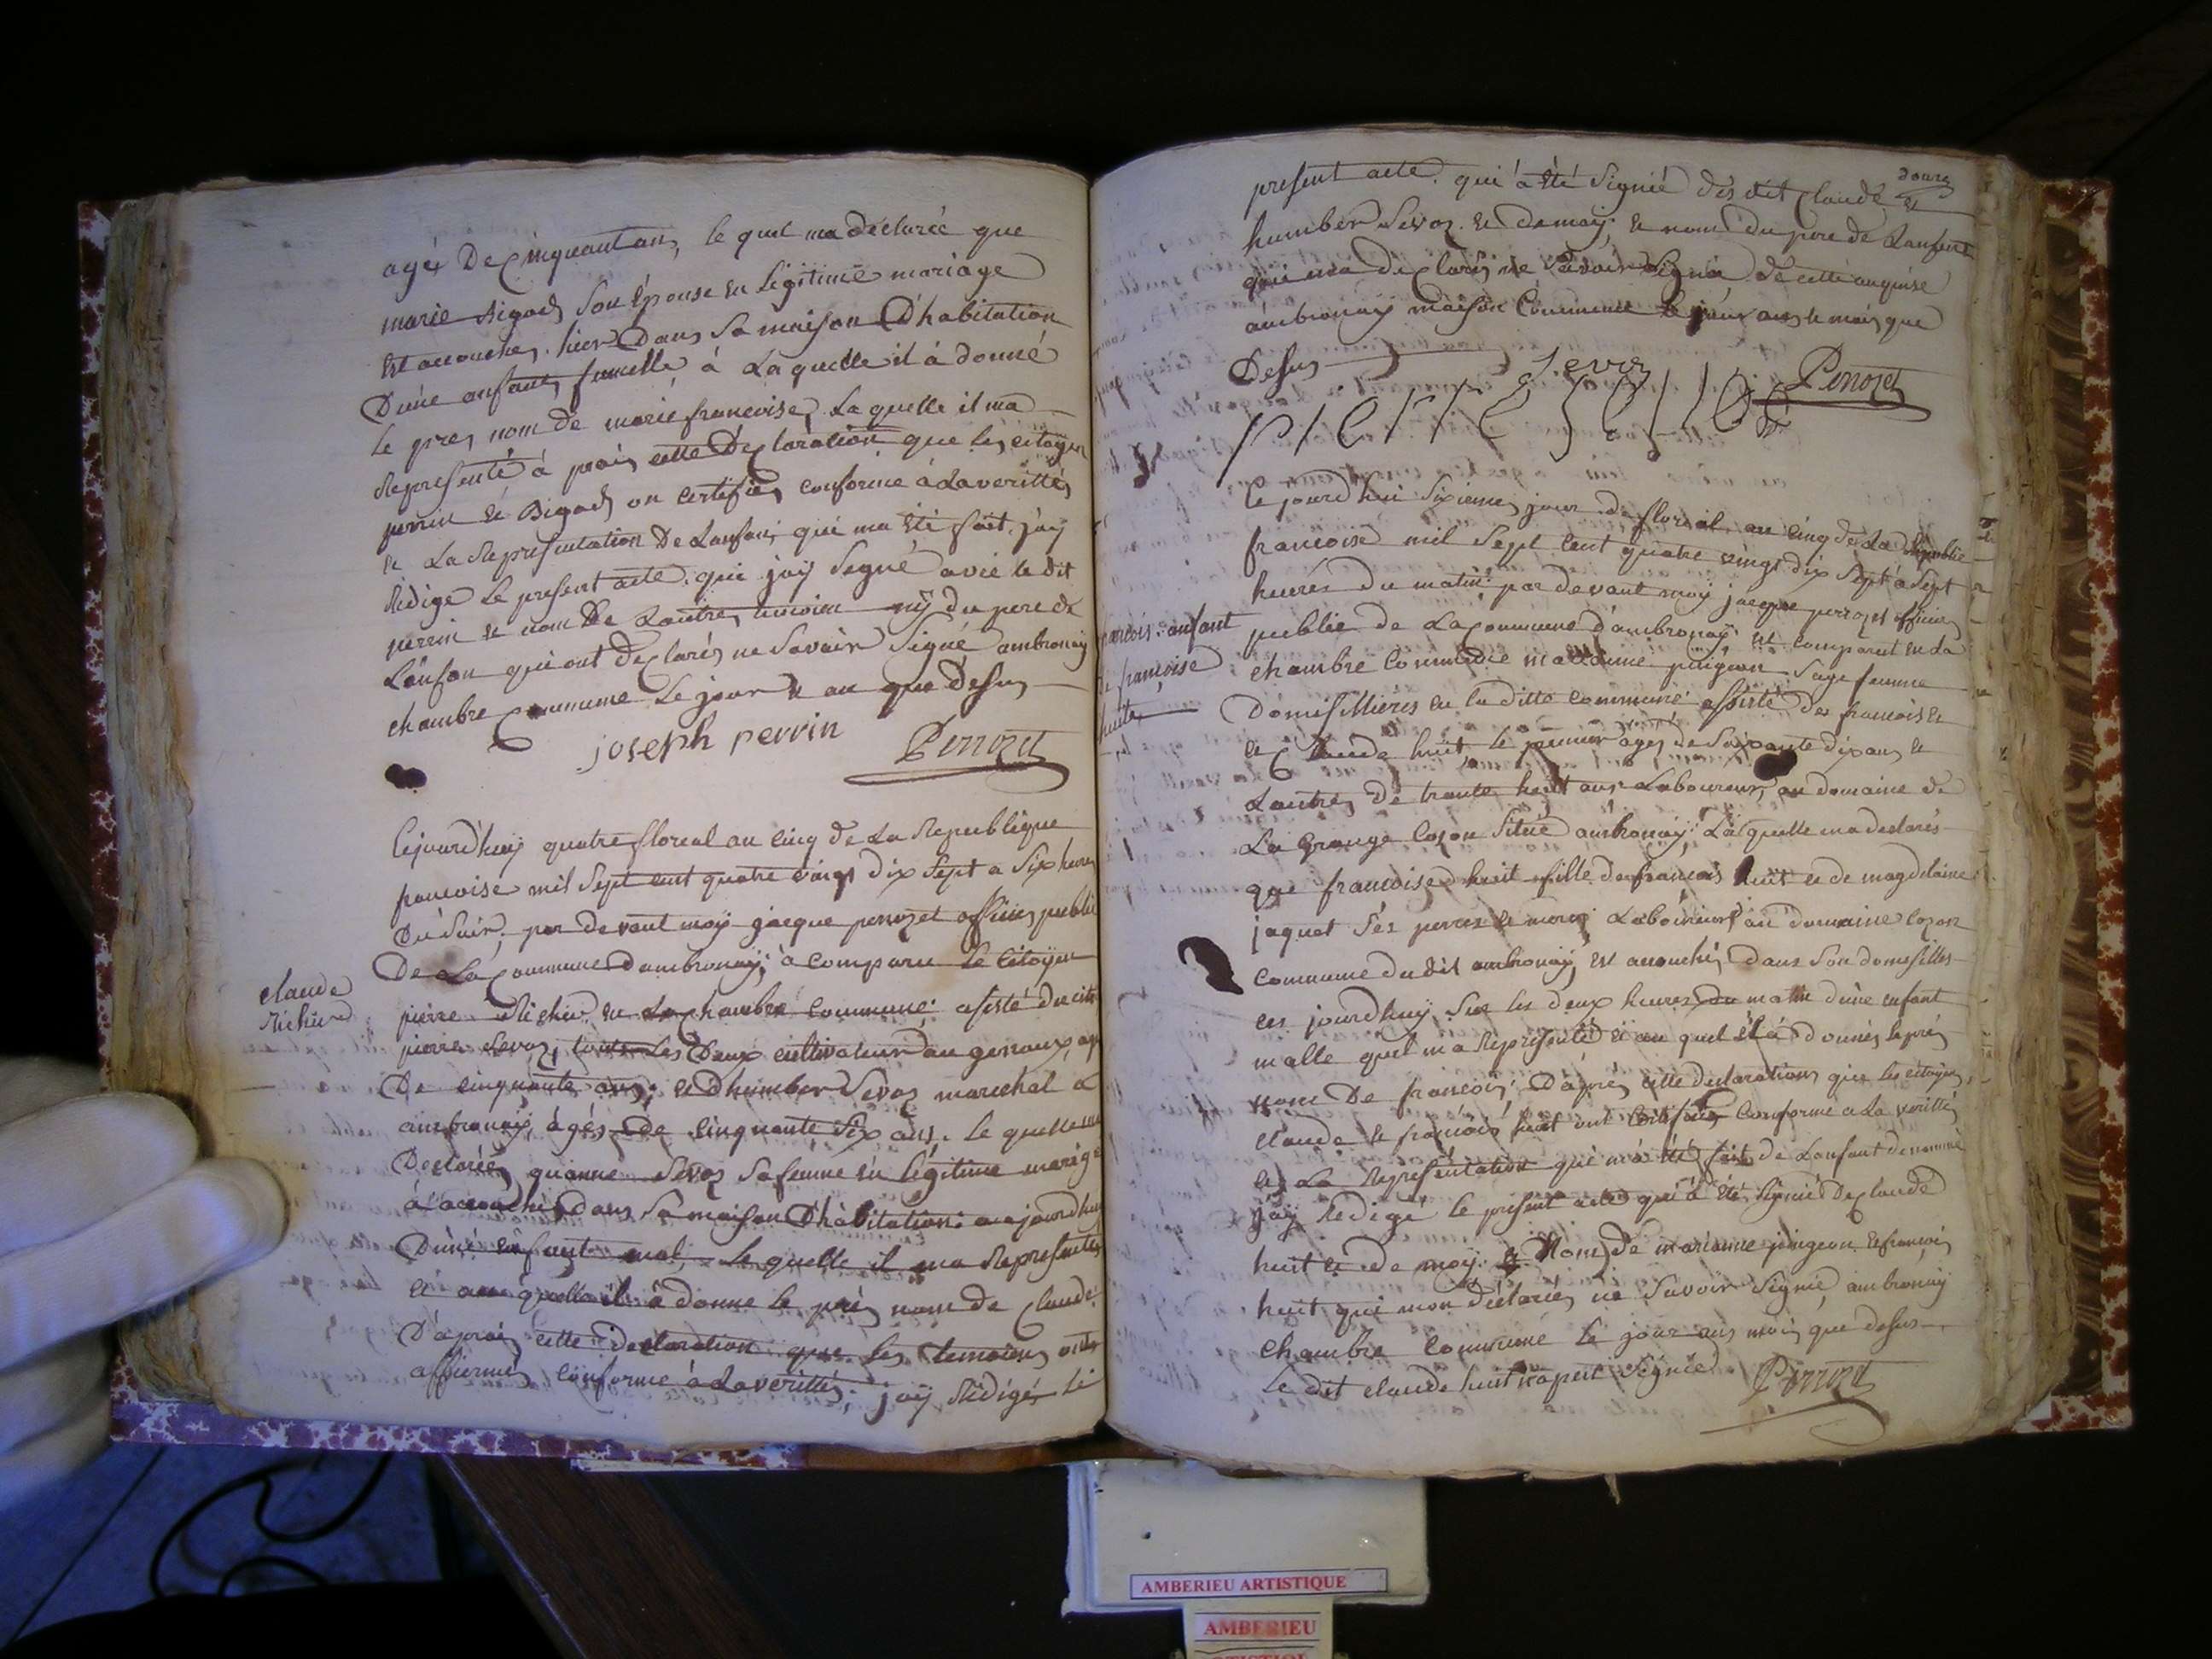 agés De Cinqeant an, le quel ma declarée que
marie Bigods son Epouse en legitime mariage
Est accouches hier Dans sa maison D'habitation
D'une anfants fumelle à Laquelle il à donné
le prez nom de marie francoise, Laquelle il ma
Representé à prais cette Declaration que les citoyen
perrin et Bigods on certifiés conforme à Laveritté
et La Representation De Lanfans qui ma été fait jay
Rédige Le present acte qui jay Segné avec le dit
perrin et nom de Lautre temoien nÿ du pere de
Lanfan qui ont Declarés ne Savoir Signé ambronay
chambre Commune Le jour et an que Desus
joseph perrin Perrozet
Cejourd'huy quatre floreal an cinq de La Republique
francoise mil Sept cent quatre vingt dix Sept a Six heures
Du Soir, par devant moy jacque perrozet officier public
De La Commune d'ambronay, à comparu Le Citoyen
claude
Richerd
pierre Richerd en La Chambre Commune assisté du
pierre Sevoz, touts Les Deux cultivateur au genoux
De Cinquante ans, et Dhumber Sevoz marechal a
ambronay, àgés de Cinquante Six ans. le quelle
Declarées quanne Sevoz Safemme en légitime
à Laccouchés dans Sa maison D'habitation aujourdhuy
D'une enfant mal, Le quelle il ma Representé
et au quelle il à donne le prés nom de Claude
D'après cette declaration que les temoiens onts
affiermés conforme à Laveritté, jay Rédigés Le
douze
present acte. qui à été Signié des dit Claude et
humber Sevoz et de moy, et nom du pere de Lanfent
qui ma declarés ne Savoir Signie de cette
ambronay maison Commune le jour ans et mois que
Desus Sevoz Perrozet
Ce jourdhui Sixieme jour de floreal an Cinq de La Republic
francoise mil Sept cent quatre vingt dix Sept à Sept
heures du matin par devant moy jacque perrozet officier
francois anfant
de francoise
huit
public de La Commune d'ambronay, est comparut en La
chambre Commune marianne puigeon Sage femme
Domisillieres en La ditte commune assisté des francois et
et Claude huit, le premier ages de Soixante dix ans et
Lautres de trante huit ans Laboureur, au domaine de
La Grange Cozon Situé ambronay. Laquelle ma declarés
que francoise huit fille de francois huit et de magdelaine
jaquet Ses perres et meres Laboureurs au domaine Cozon
Commune dudit ambronay, est accouchés Dans Son domisilles
ces jourdhuy Sur les deux heures du matin d'une enfant
malle quel ma Representé et au quel il à donnés le prés
nom De francois. D'après cette declarations que les citoyens
claude et francois huit ont Certifiés Conforme a La veritté
et La Representation qui m'a été fait de Lanfant denommé
jay Redigé le present acte qui à été Signié De Claude
huit et de moy. et Nom de marianne puigeon et francois
huit qui mon déclarés ne Savoir Signié, ambronay
chambre Commune Le jour ans mois que desus
Le dit claude huit Signié Perrozet
AMBERIEU ARTISTIQUE
AMBERIEU